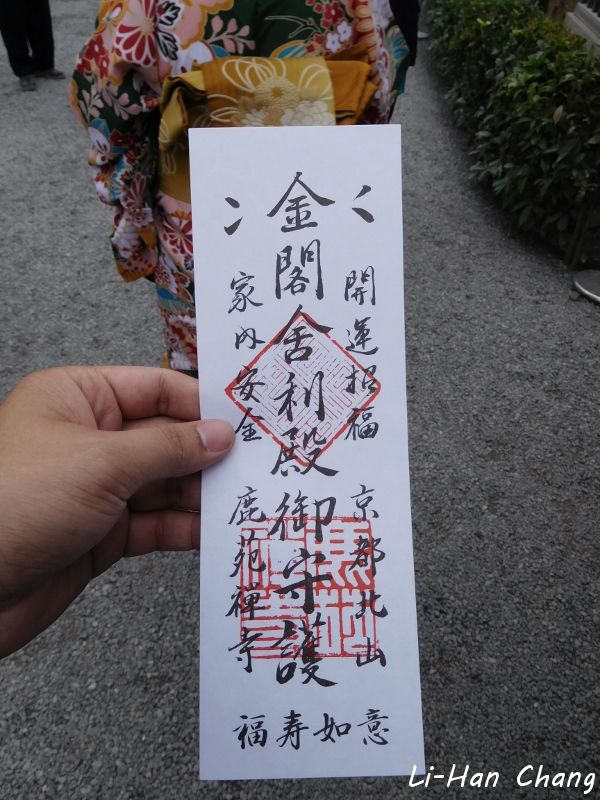 開運招福 京都北山
金閣舍利殿御守護
家内安全 鹿苑禅寺
福寿如意
Li-Han Chang